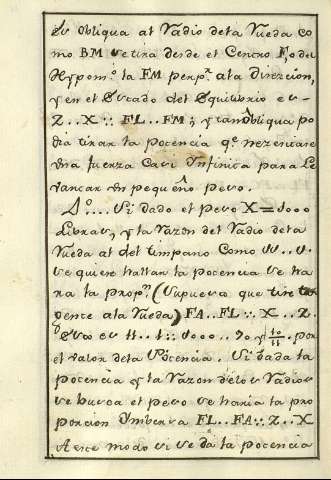 es obliqua al Radio dela Rueda co
mo BM se tira desde el Centro F, o del
Hypom.º la FM perp.r ala direccion,
y en el Estado del Equilibrio es-
Z..X :: FL..FM; y tan obliqua po
dia tirar la potencia q.e nezesitase
una fuerza Casi Infinita para Le
vantar un pequeño peso.
Si dado el peso X = 1000
Libras, y la Razon del Radio dela
Rueda al del timpano Como
se quiere hallar la potencia se ha
ra la prop.n (Supuesto que tire tan
gente ala Rueda) FA..FL :: X..Z.
Esto es 11..1 :: 1000..90 y 10/11 por
el valor dela Potencia. Si dada la
potencia y la Razon delos Radios
se busca el peso se haria la pro
porcion Imbersa FL..FA :: Z..X
A este modo si se da la potencia